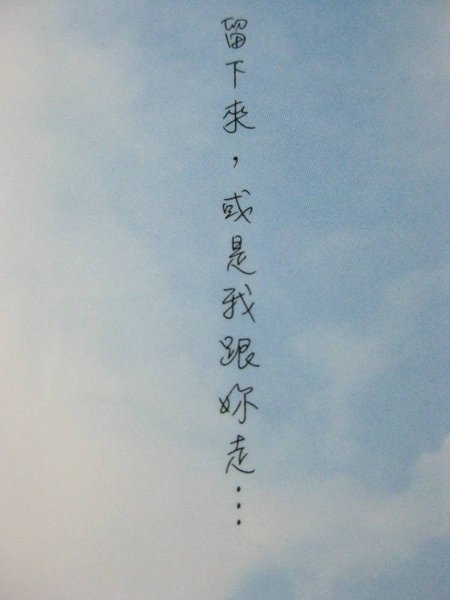 留下來，或是我跟妳走…